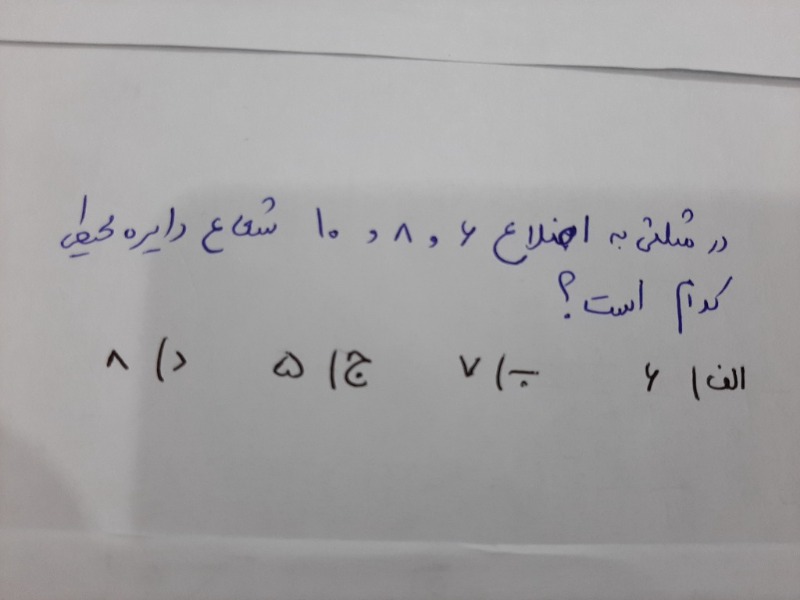 در مثلثی به اضلاع ۶ و ۸ و ۱۰ شعاع دایره محیطی
کدام است؟
الف) ۶ ب) ۷ ج) ۵ د) ۸